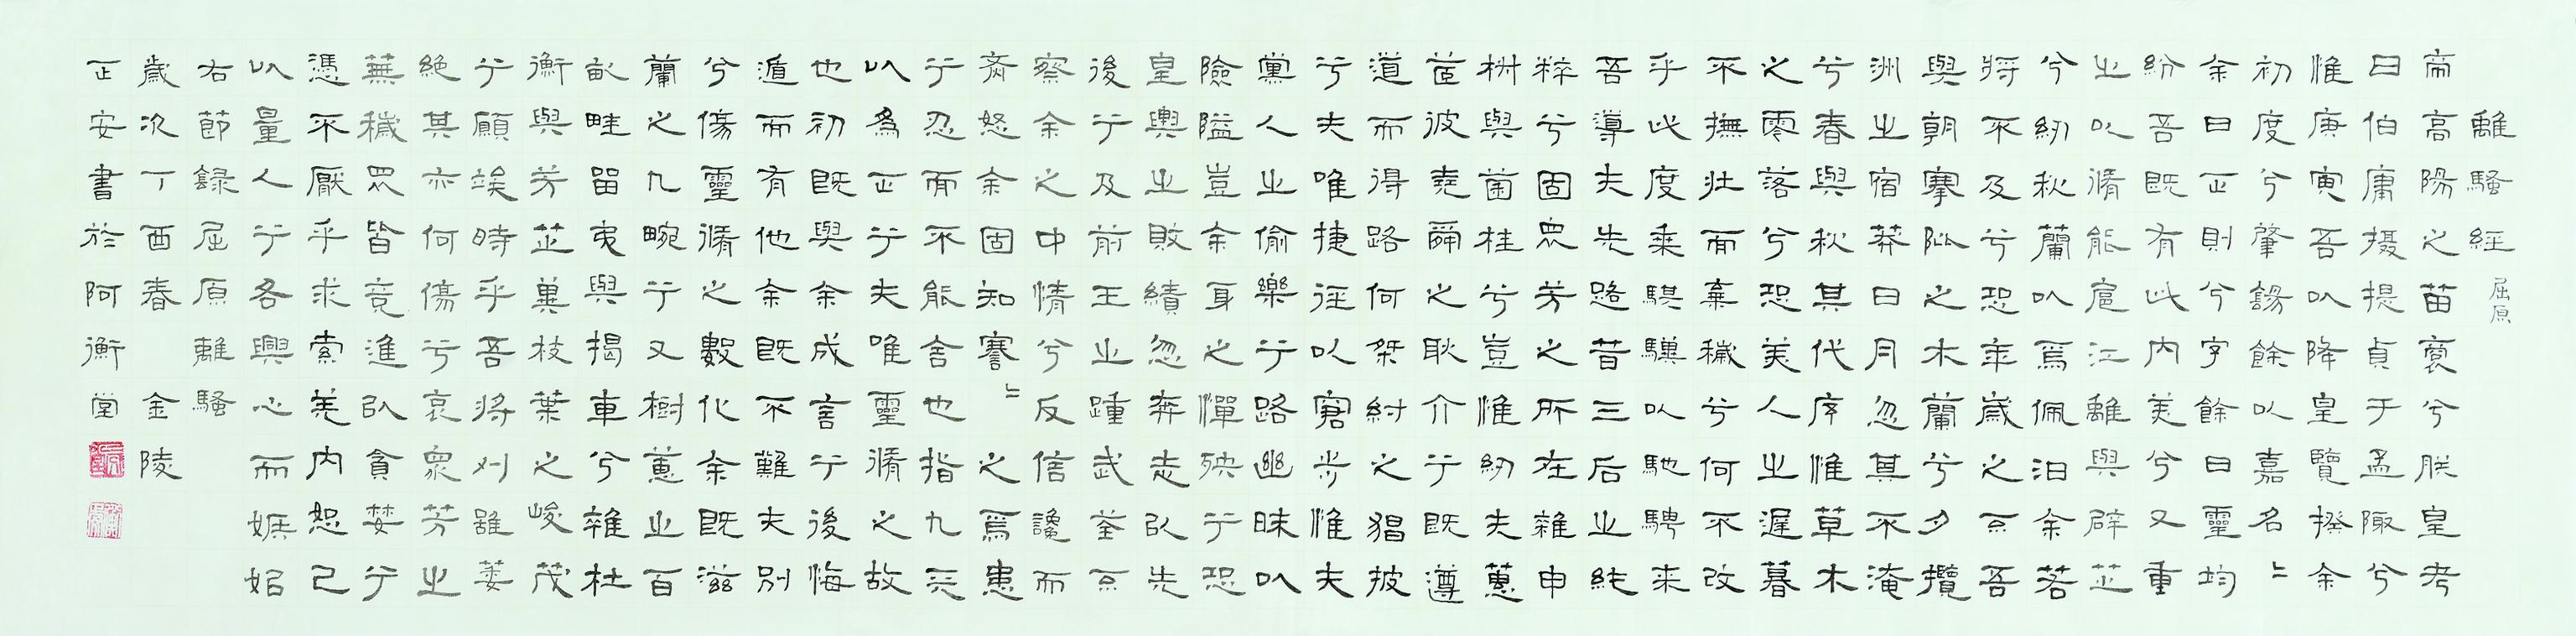 離騷經 屈原
帝高陽之苗裔兮朕皇考
曰伯庸攝提貞于孟陬兮
惟庚寅吾以降皇覽揆余
初度兮肇錫餘以嘉名〻
余曰正則兮字餘曰靈均
紛吾既有此內美兮又重
之以脩能扈江離與辟芷
兮紉秋蘭以為佩汩余若
將不及兮恐年歲之不吾
與朝搴阰之木蘭兮夕攬
洲之宿莽日月忽其不淹
兮春與秋其代序惟草木
之零落兮恐美人之遲暮
不撫壯而棄穢兮何不改
乎此度乘騏驥以馳騁來
吾導夫先路昔三后之純
粹兮固眾芳之所在雜申
椒與菌桂兮豈惟紉夫蕙
茝彼堯舜之耿介兮既遵
道而得路何桀紂之猖披
兮夫唯捷徑以窘步惟夫
黨人之偷樂兮路幽昧以
險隘豈余身之憚殃兮恐
皇輿之敗績忽奔走以先
後兮及前王之踵武荃不
察余之中情兮反信讒而
齌怒余固知謇〻之為患
兮忍而不能舍也指九天
以為正兮夫唯靈脩之故
也初既與余成言兮後悔
遁而有他余既不難夫別
兮傷靈脩之數化余既滋
蘭之九畹兮又樹蕙之百
畝畦留夷與揭車兮雜杜
衡與芳芷冀枝葉之峻茂
兮願竢時乎吾將刈雖萎
絕其亦何傷兮哀眾芳之
蕪穢眾皆競進以貪婪兮
憑不厭乎求索羌內恕己
以量人兮各興心而嫉妒
右節錄屈原離騷
歲次丁酉春 金陵
正安書於阿衡堂